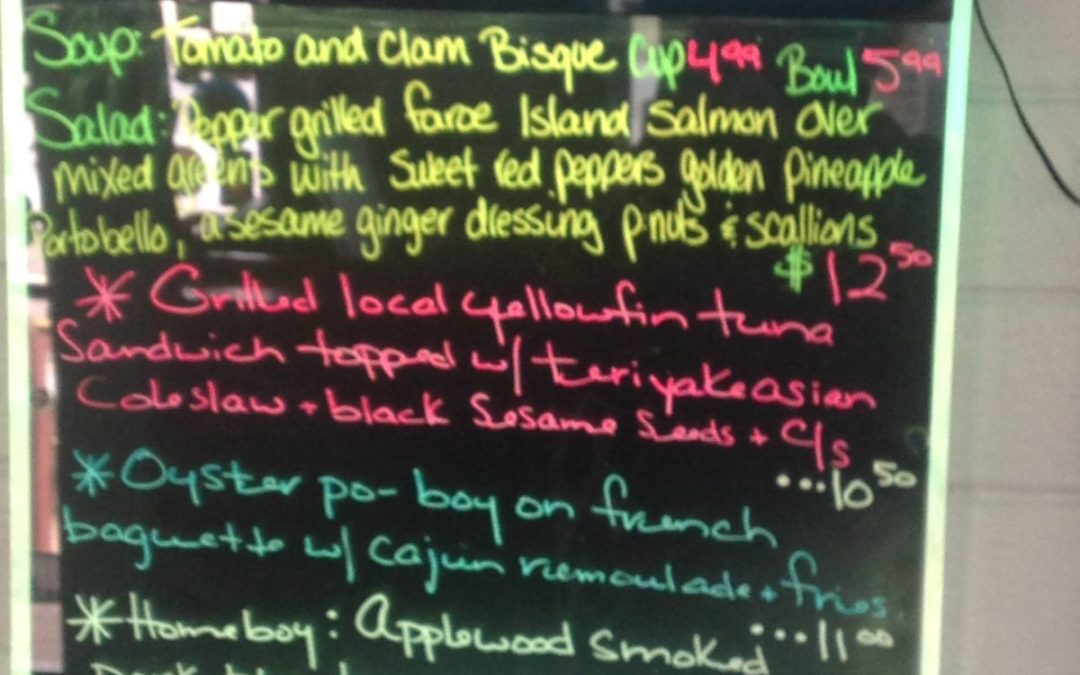 Soup: Tomato and Clam Bisque Cup 4.99 Bowl 5.99
Salad: Pepper grilled faroe Island Salmon over
mixed greens with sweet red peppers golden pineapple
Portobello, a sesame ginger dressing p-nuts & scallions
$12.50
* Grilled local yellowfin tuna
Sandwich topped w/ teriyake asian
Coleslaw + black Sesame Seeds + C/s
...10.50
* Oyster po-boy on french
baguette w/ cajun remoulade + fries
...11.00
* Homeboy: Applewood Smoked